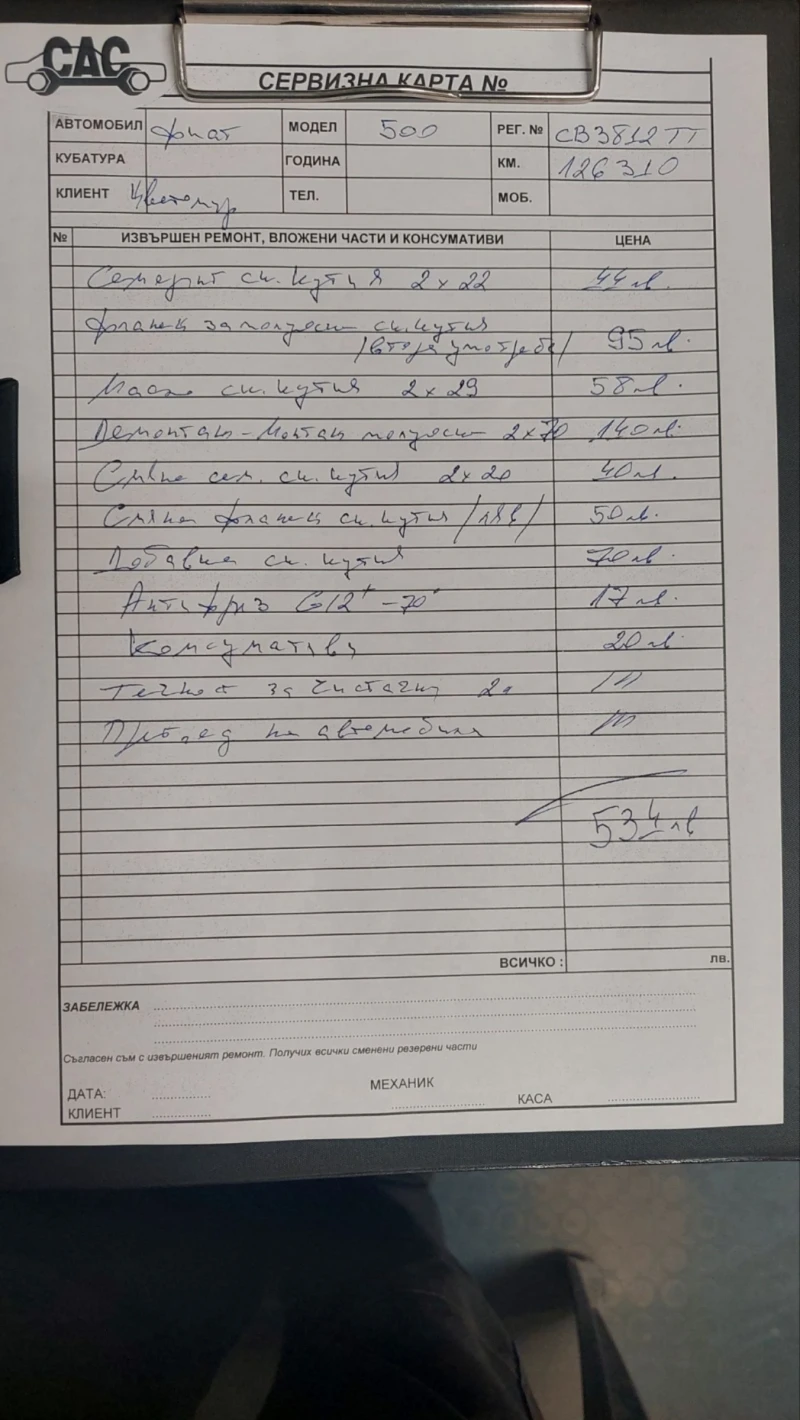 САС
СЕРВИЗНА КАРТА №
АВТОМОБИЛ фиат МОДЕЛ 500 РЕГ. № СВ3812ТТ
КУБАТУРА ГОДИНА КМ. 126310
КЛИЕНТ Цветомир ТЕЛ. МОБ.
№ ИЗВЪРШЕН РЕМОНТ, ВЛОЖЕНИ ЧАСТИ И КОНСУМАТИВИ ЦЕНА
Семеринг ск. кутия 2x22 44лв.
фланец за полуоска ск. кутия
/втора употреба/ 95лв.
Масло ск. кутия 2x29 58лв.
Демонтаж-Монтаж полуоски 2x70 140лв.
Смяна сем. ск. кутия 2x20 40лв.
Смяна фланец ск. кутия /ляв/ 50лв.
Добавка ск. кутия 70лв.
Антифриз G12+ -70° 17лв.
Консумативи 20лв.
Течност за чистачки
Преглед на автомобила
534лв
ВСИЧКО : лв.
ЗАБЕЛЕЖКА
Съгласен съм с извършеният ремонт. Получих всички сменени резервни части
ДАТА: МЕХАНИК
КЛИЕНТ КАСА